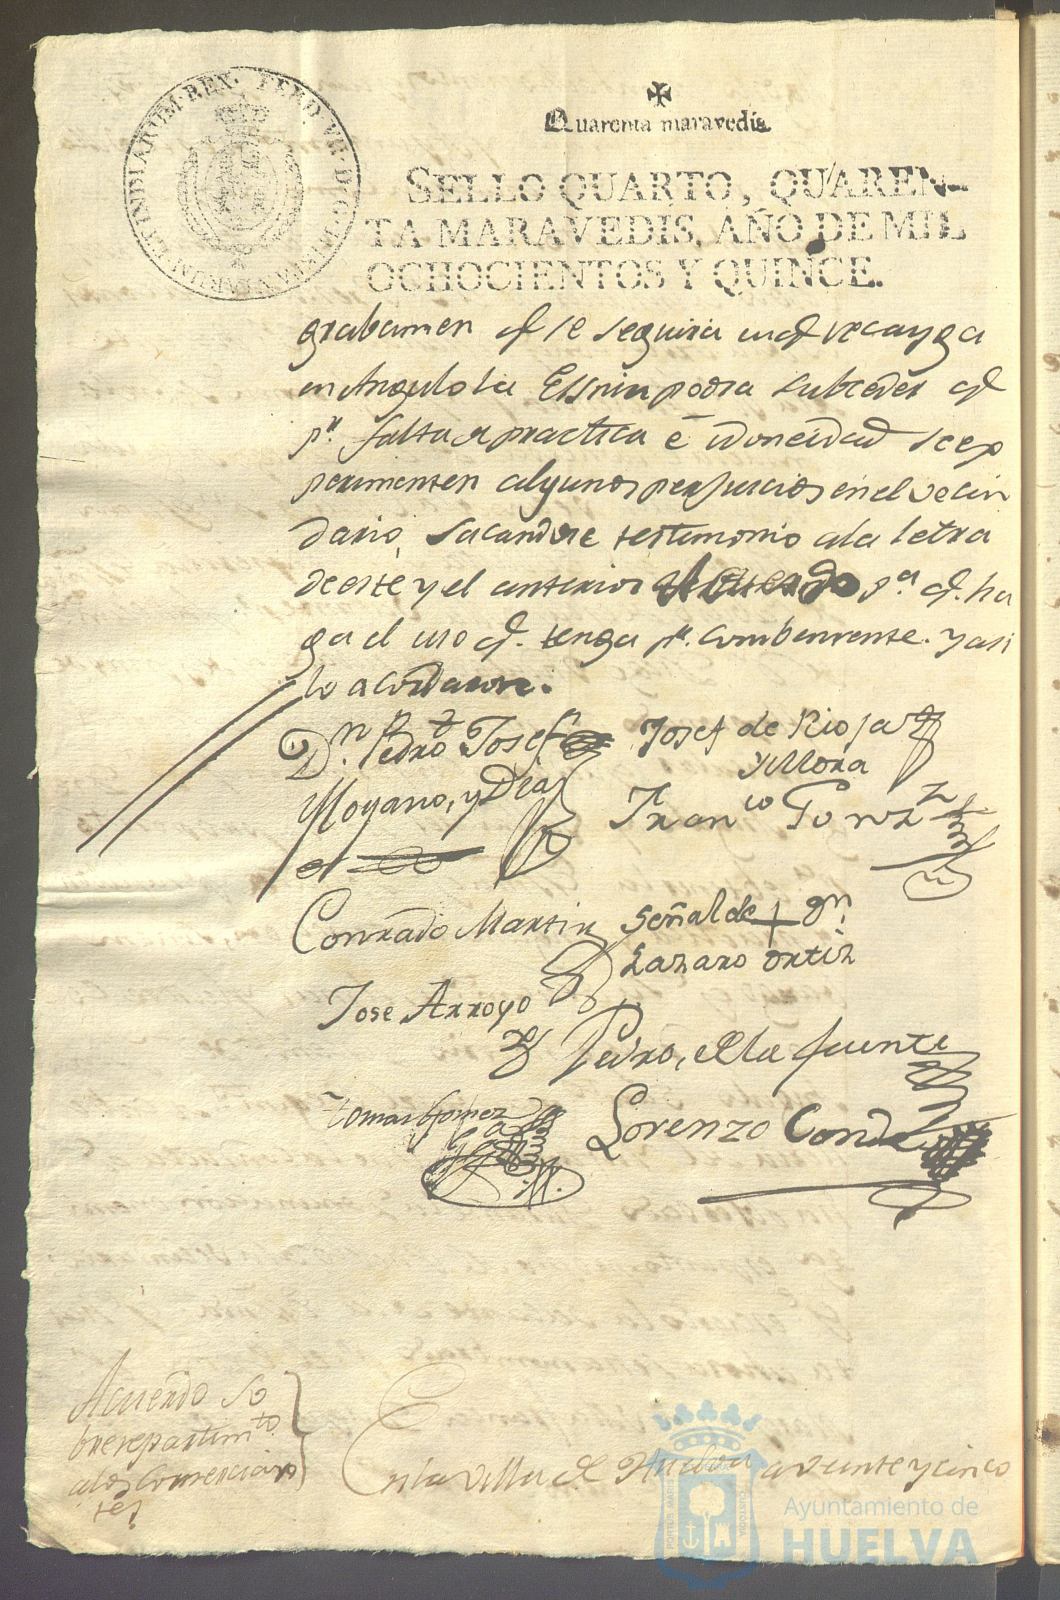 FERD. VII. D. G. HISPANIARUM ET INDIARUM REX.
Quarenta maravedis.
SELLO QUARTO, QUAREN-
TA MARAVEDIS, AÑO DE MIL
OCHOCIENTOS Y QUINCE.
grabamen q se seguira en q recayga
en Angulo la podra subceder q
pr. falta de practica é idoneidad se exp
perimenten algunos perjuicios en el vecin
dario, sacandose testimonio ala letra
de este y el anterior pa. q. ha
ga el uso q. tenga pr. combeniente. y asi
lo acordaron.
Dn. Pedro Josef
Moyano, y Diaz
Josef de Rioja
y Mora
Franco
Conrado Martin
Señal de + Dn.
Lazaro Ortiz
Jose Arroyo
Pedro, de la fuente
Tomas Gomez
Lorenzo Conde
Acuerdo so
bre repartimto.
a los Comercian
tes
En la Villa de Huelva a veinte y cinco
Ayuntamiento de
HUELVA